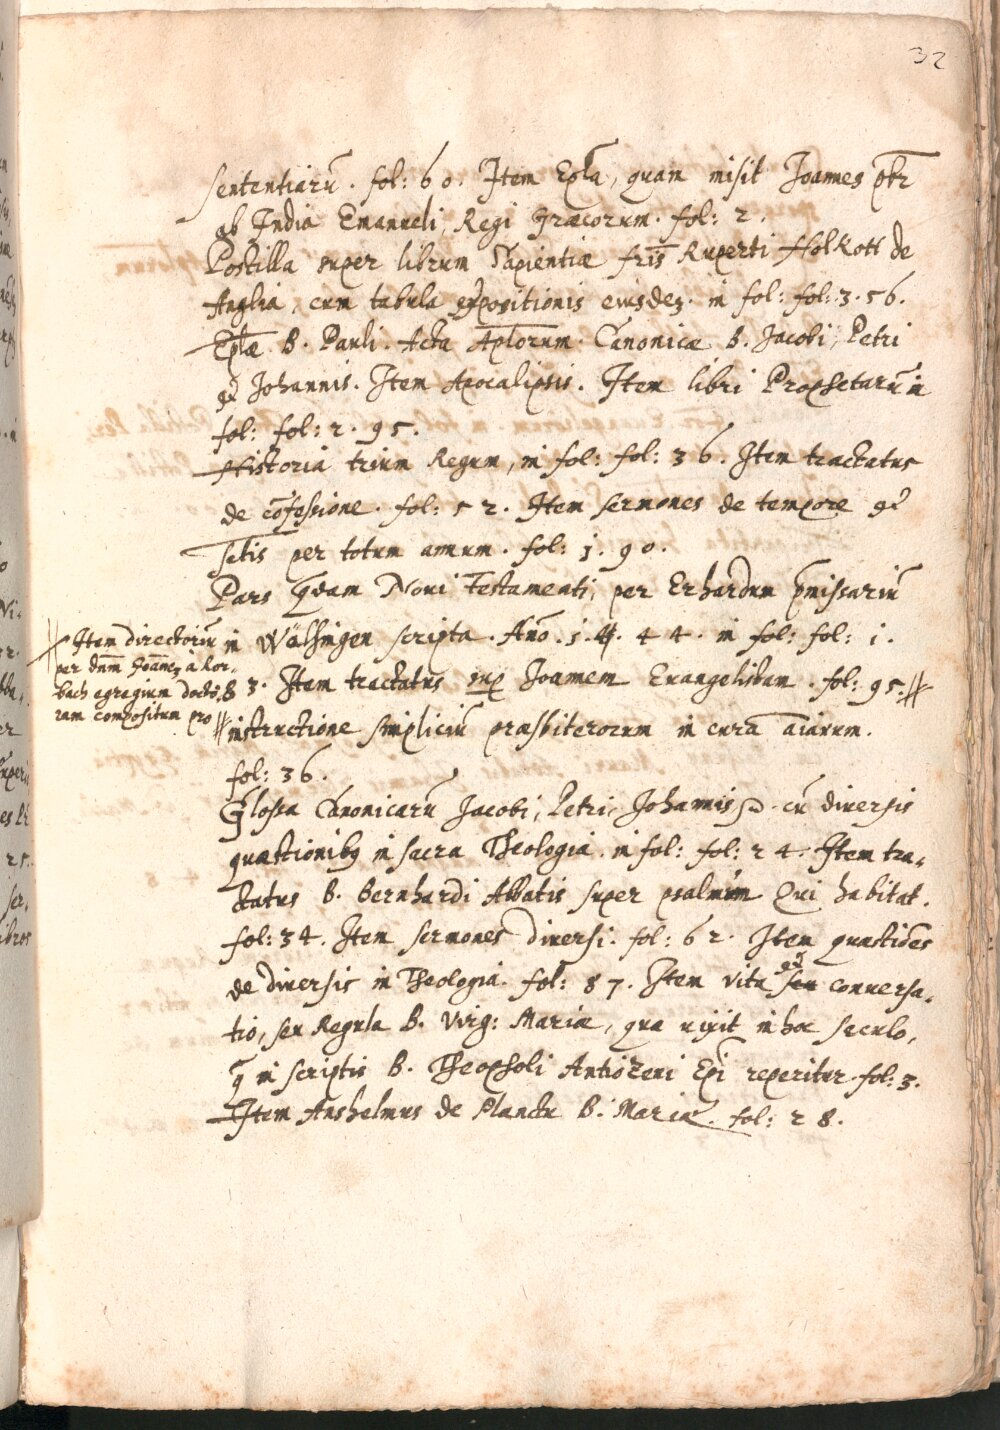 32
sententiarū. fol: 60. Item Epl̄a, quam misit Joannes p̄br
ab India Emanueli, Regi Græcorum. fol: 2.
Postilla super librum Sapientiæ fr̄is Ruperti Holkott de
Anglia, cum tabula expositionis eiusdeʒ. in fol: fol: 3.56.
Epl̄æ B. Pauli. Acta Ap̄lorum. Canonicæ B. Jacobi, Petri
et Johannis. Item Apocalipsis. Item libri Prophetarū in
fol: fol: 2.95.
Historia trium Regum, in fol: fol: 36. Item tractatus
de cōfessione. fol: 52. Item sermones de tempore et
sc̄tis per totum annum. fol: 1.90.
Pars quædam Noui Testamenti, per Erhardum p̄missariū
in Wälsingen scripta. Año. 1.4.44. in fol: fol: 1.
83. Item tractatus sup Joannem Euangelistam. fol: 95. //
// Item directoriū
per dn̄m Joanneʒ à Aur-
bach egregium docto-
rem compositum pro //
instructione simpliciū præsbiterorum in cura aīarum.
fol: 36.
Glossa Canonicarū Jacobi, Petri, Johannis, cū diuersis
quæstionibus in sacra Theologia. in fol: fol: 24. Item tra-
ctatus B. Bernhardi Abbatis super psalmum Qui habitat.
fol: 34. Item sermones diuersi. fol: 62. Item quæstiones
de diuersis in Theologia. fol: 87. Item vita seu et conuersa-
tio, seu Regula B. Virg: Mariæ, qua uixit in hoc sæculo,
q̄ in scriptis B. Theopholi Antiozeni Ep̄i reperitur. fol: 3.
Item Anshelmus de Planctu B. Mariæ. fol: 28.